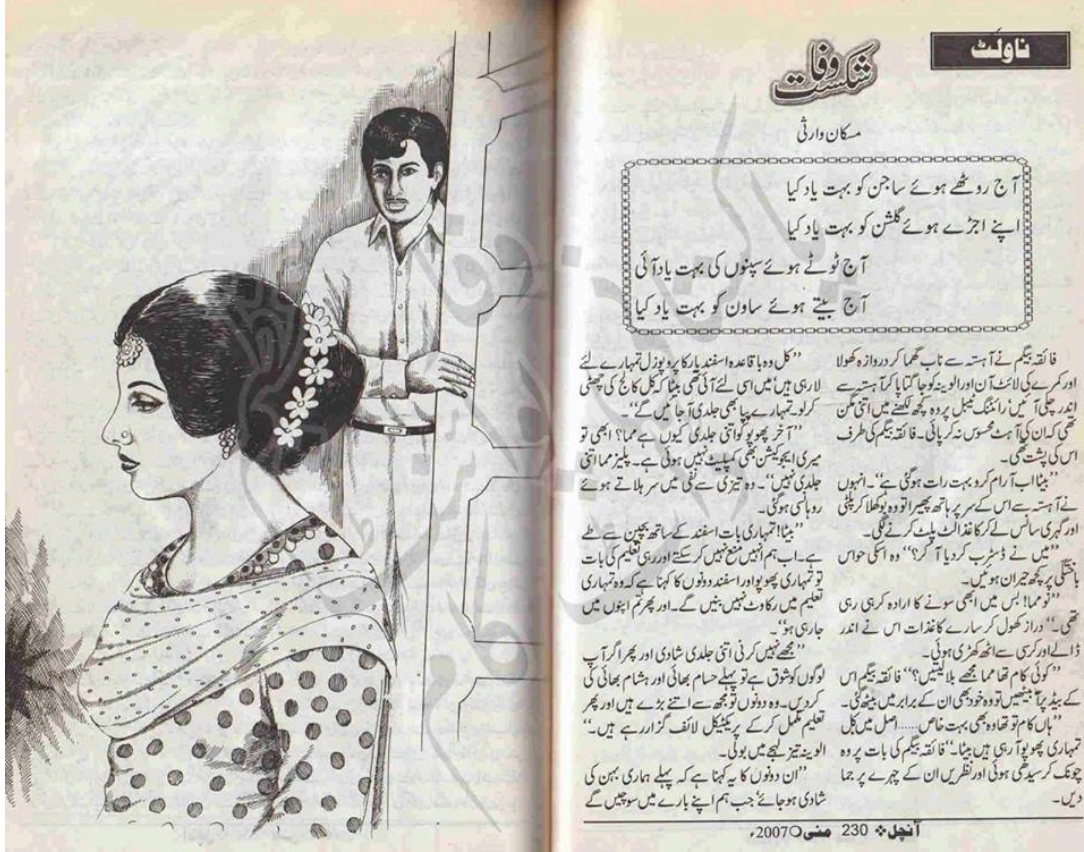 ناولٹ
شکست وفا
مسکان وارثی
آج روٹھے ہوئے ساجن کو بہت یاد کیا
اپنے اجڑے ہوئے گلشن کو بہت یاد کیا
آج ٹوٹے ہوئے سپنوں کی بہت یاد آئی
آج بیتے ہوئے ساون کو بہت یاد کیا
فائقہ بیگم نے آہستہ سے ناب گھما کر دروازہ کھولا
اور کمرے کی لائٹ آن اور الوینہ کو جاگتا پا کر آہستہ سے
اندر چلی آئیں‘ رائٹنگ ٹیبل پر وہ کچھ لکھنے میں اتنی مگن
تھی کہ ان کی آہٹ محسوس نہ کر پائی۔ فائقہ بیگم کی طرف
اس کی پشت تھی۔
’’بیٹا اب آرام کرو بہت رات ہوگئی ہے‘‘۔ انہوں
نے آہستہ سے اس کے سر پر ہاتھ پھیرا تو وہ بوکھلا کر پلٹی
اور گہری سانس لے کر کاغذ الٹ پلٹ کرنے لگی۔
’’میں نے ڈسٹرب کردیا آ کر؟‘‘ وہ اسکی حواس
باختگی پر کچھ حیران ہوئیں۔
’’نو مما! بس میں ابھی سونے کا ارادہ کر ہی رہی
تھی۔‘‘ دراز کھول کر سارے کاغذات اس نے اندر
ڈالے اور کرسی سے اٹھ کھڑی ہوئی۔
’’کوئی کام تھا مما مجھے بلا لیتیں؟‘‘ فائقہ بیگم اس
کے بیڈ پر آ بیٹھیں تو وہ خود بھی ان کے برابر میں بیٹھ گئی۔
’’ہاں کام تو تھا وہ بھی بہت خاص...... اصل میں کل
تمہاری پھوپو آ رہی ہیں بیٹا۔‘‘ فائقہ بیگم کی بات پر وہ
چونک کر سیدھی ہوئی اور نظریں ان کے چہرے پر جما
دیں۔
’’کل وہ باقاعدہ اسفند یار کا پروپوزل تمہارے لئے
لا رہی ہیں‘ میں اسی لئے آئی تھی بیٹا کہ کل کالج کی چھٹی
کرلو۔ تمہارے پپا بھی جلدی آجائیں گے‘‘۔
’’آخر پھوپو کو اتنی جلدی کیوں ہے مما؟ ابھی تو
میری ایجوکیشن بھی کمپلیٹ نہیں ہوئی ہے۔ پلیز مما اتنی
جلدی نہیں‘‘۔ وہ تیزی سے نفی میں سر ہلاتے ہوئے
روہانسی ہوگئی۔
’’بیٹا! تمہاری بات اسفند کے ساتھ بچپن سے طے
ہے۔ اب ہم انہیں منع نہیں کرسکتے اور رہی تعلیم کی بات
تو تمہاری پھوپو اور اسفند دونوں کا کہنا ہے کہ وہ تمہاری
تعلیم میں رکاوٹ نہیں بنیں گے۔ اور پھر تم اپنوں میں
جارہی ہو‘‘۔
’’مجھے نہیں کرنی اتنی جلدی شادی اور پھر اگر آپ
لوگوں کو شوق ہے تو پہلے حسام بھائی اور ہشام بھائی کی
کردیں۔ وہ دونوں تو مجھ سے اتنے بڑے ہیں اور پھر
تعلیم مکمل کرکے پریکٹیکل لائف گزار رہے ہیں۔‘‘
الوینہ تیز لہجے میں بولی۔
’’ان دونوں کا یہ کہنا ہے کہ پہلے ہماری بہن کی
شادی ہوجائے‘ جب ہم اپنے بارے میں سوچیں گے
آنچل 230 مئی 2007ء